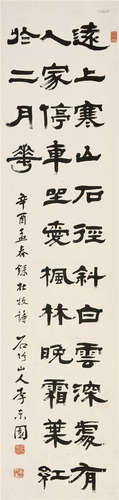 遠上寒山石徑斜白雲深處有
人家停車坐愛楓林晚霜葉紅
於二月華
辛酉孟春錄杜牧詩 石竹山人李東園